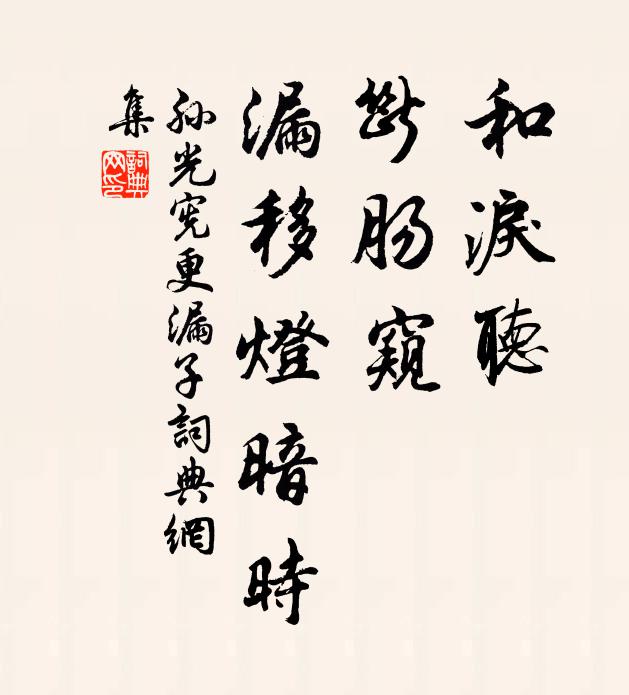 和淚聽
斷肠窺
漏移燈暗時
孫光宪更漏子詞典網
集
詞典
网印